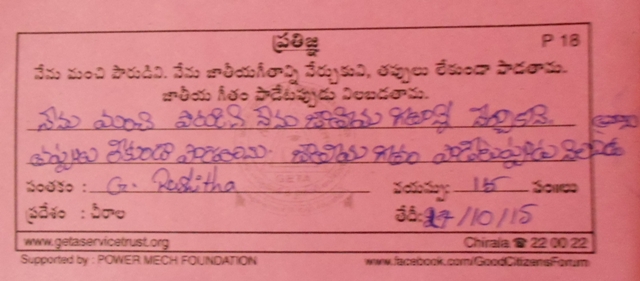 ప్రతిజ్ఞ P 18
నేను మంచి పౌరుడిని. నేను జాతీయగీతాన్ని నేర్చుకుని, తప్పులు లేకుండా పాడతాను.
జాతీయ గీతం పాడేటప్పుడు నిలబడతాను.
నేను మంచి పౌరుడిని నేను జాతీయ గీతాన్ని నేర్చుకుని.
తప్పులు లేకుండా పాడతాను. జాతీయ గీతం పాడేటప్పుడు
సంతకం : G. Rashitha వయస్సు: 15 సం॥లు
ప్రదేశం : చీరాల తేదీ: 27/10/15
www.getaservicetrust.org Chirala ☎ 22 00 22
Supported by : POWER MECH FOUNDATION www.facebook.com/GoodCitizensForum